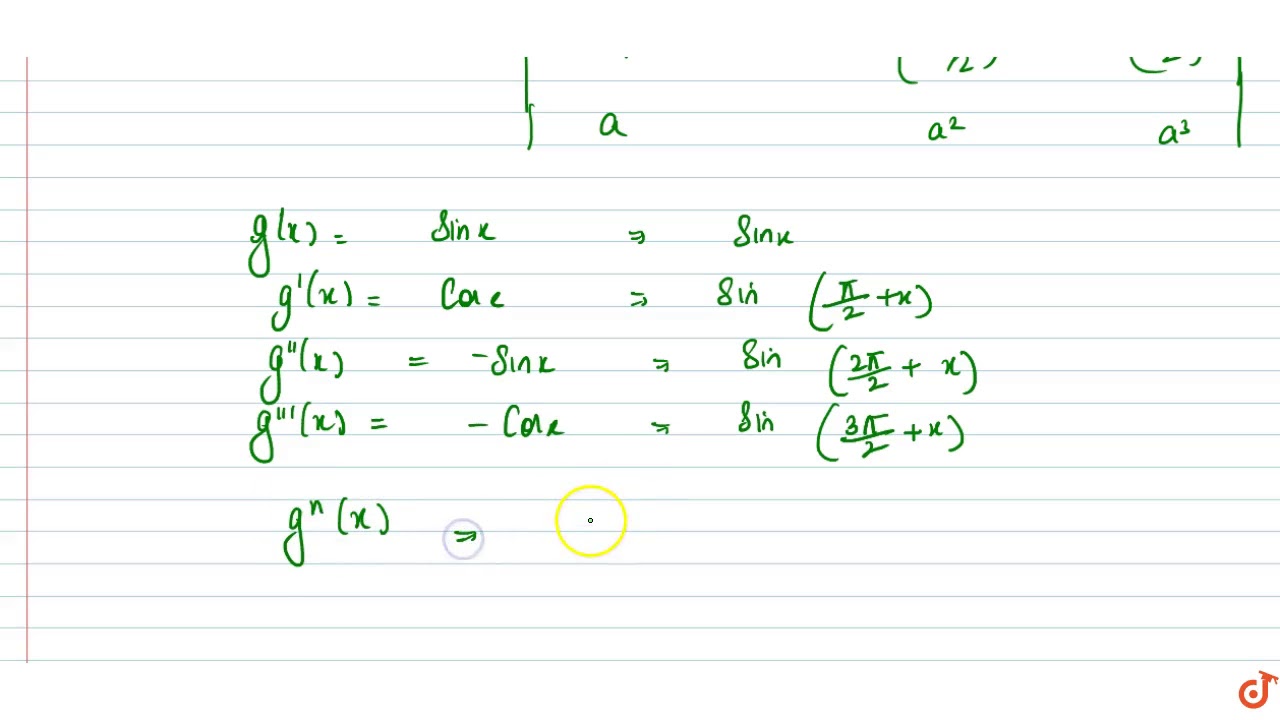 a a² a³
g(x) = sin x ⇒ sin x
g'(x) = cos x ⇒ sin (π/2 + x)
g''(x) = -sin x ⇒ sin (2π/2 + x)
g'''(x) = - cos x ⇒ sin (3π/2 + x)
gⁿ(x) ⇒